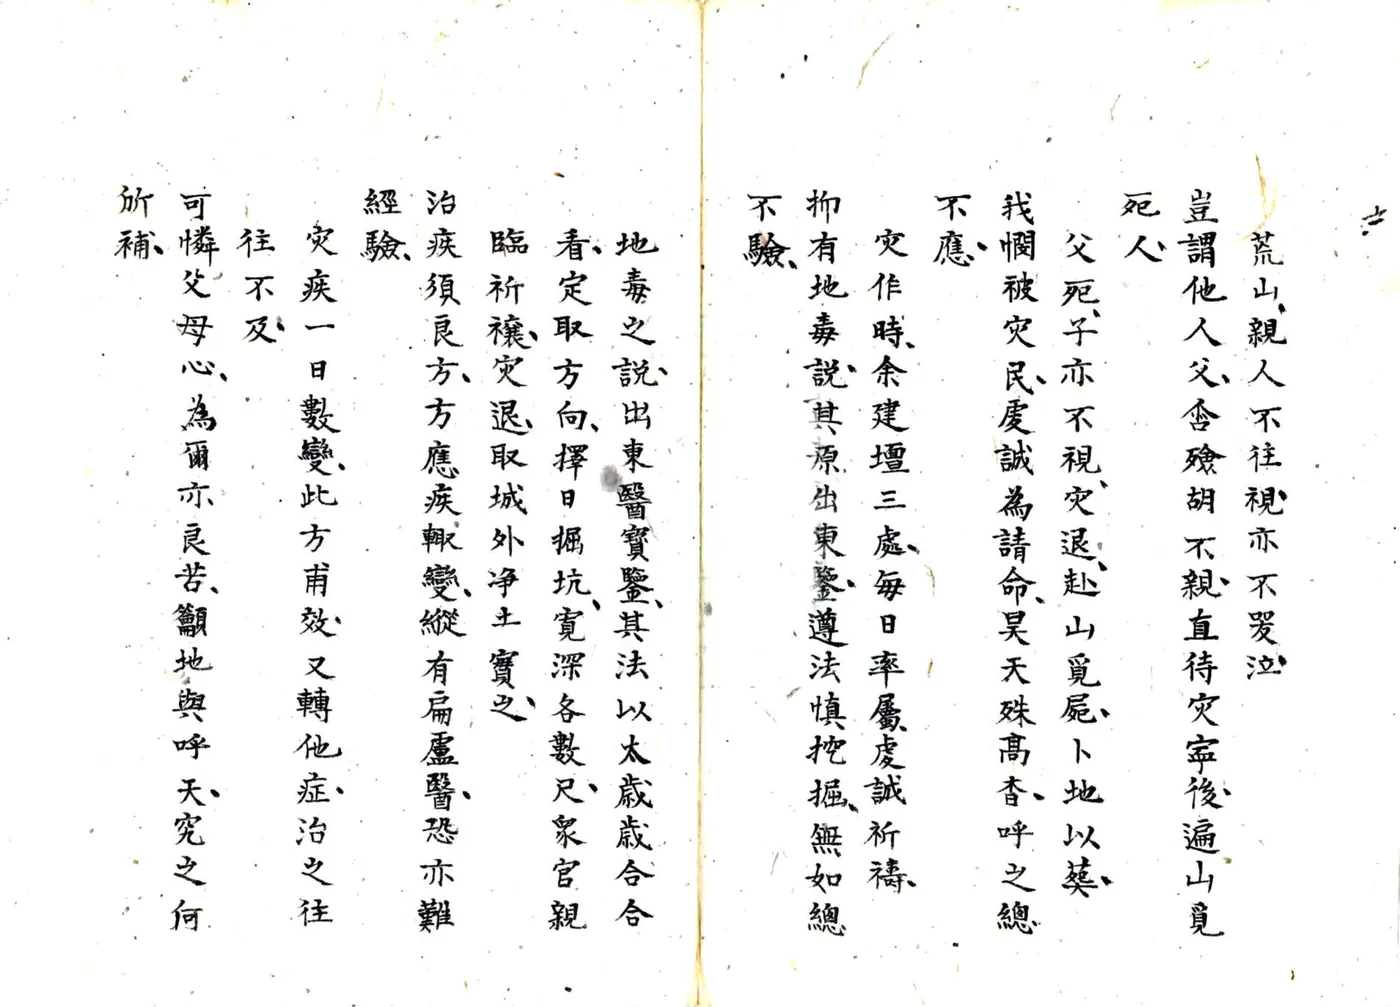 荒山、親人不往視、亦不哭泣、
豈謂他人父、含殮胡不親、直待灾寧後、遍山覓
死人、
父死、子亦不視、灾退、赴山覓屍、卜地以葬、
我憫被灾民、虔誠為請命、昊天殊高杳、呼之總
不應、
灾作時、余建壇三處、每日率屬、虔誠祈禱、
抑有地毒説、其原出東鑒、遵法慎挖掘、無如總
不驗、
地毒之説、出東醫寳鑒、其法以太歲歲合合
看、定取方向、擇日掘坑、寛深各數尺、衆官親
臨祈禳、灾退、取城外净土寳之、
治疾須良方、方應疾輙變、縱有扁盧醫、恐亦難
經驗、
灾疾一日數變、此方甫效、又轉他症、治之往
往不及、
可憐父母心、為爾亦良苦、籲地與呼天、究之何
所補、